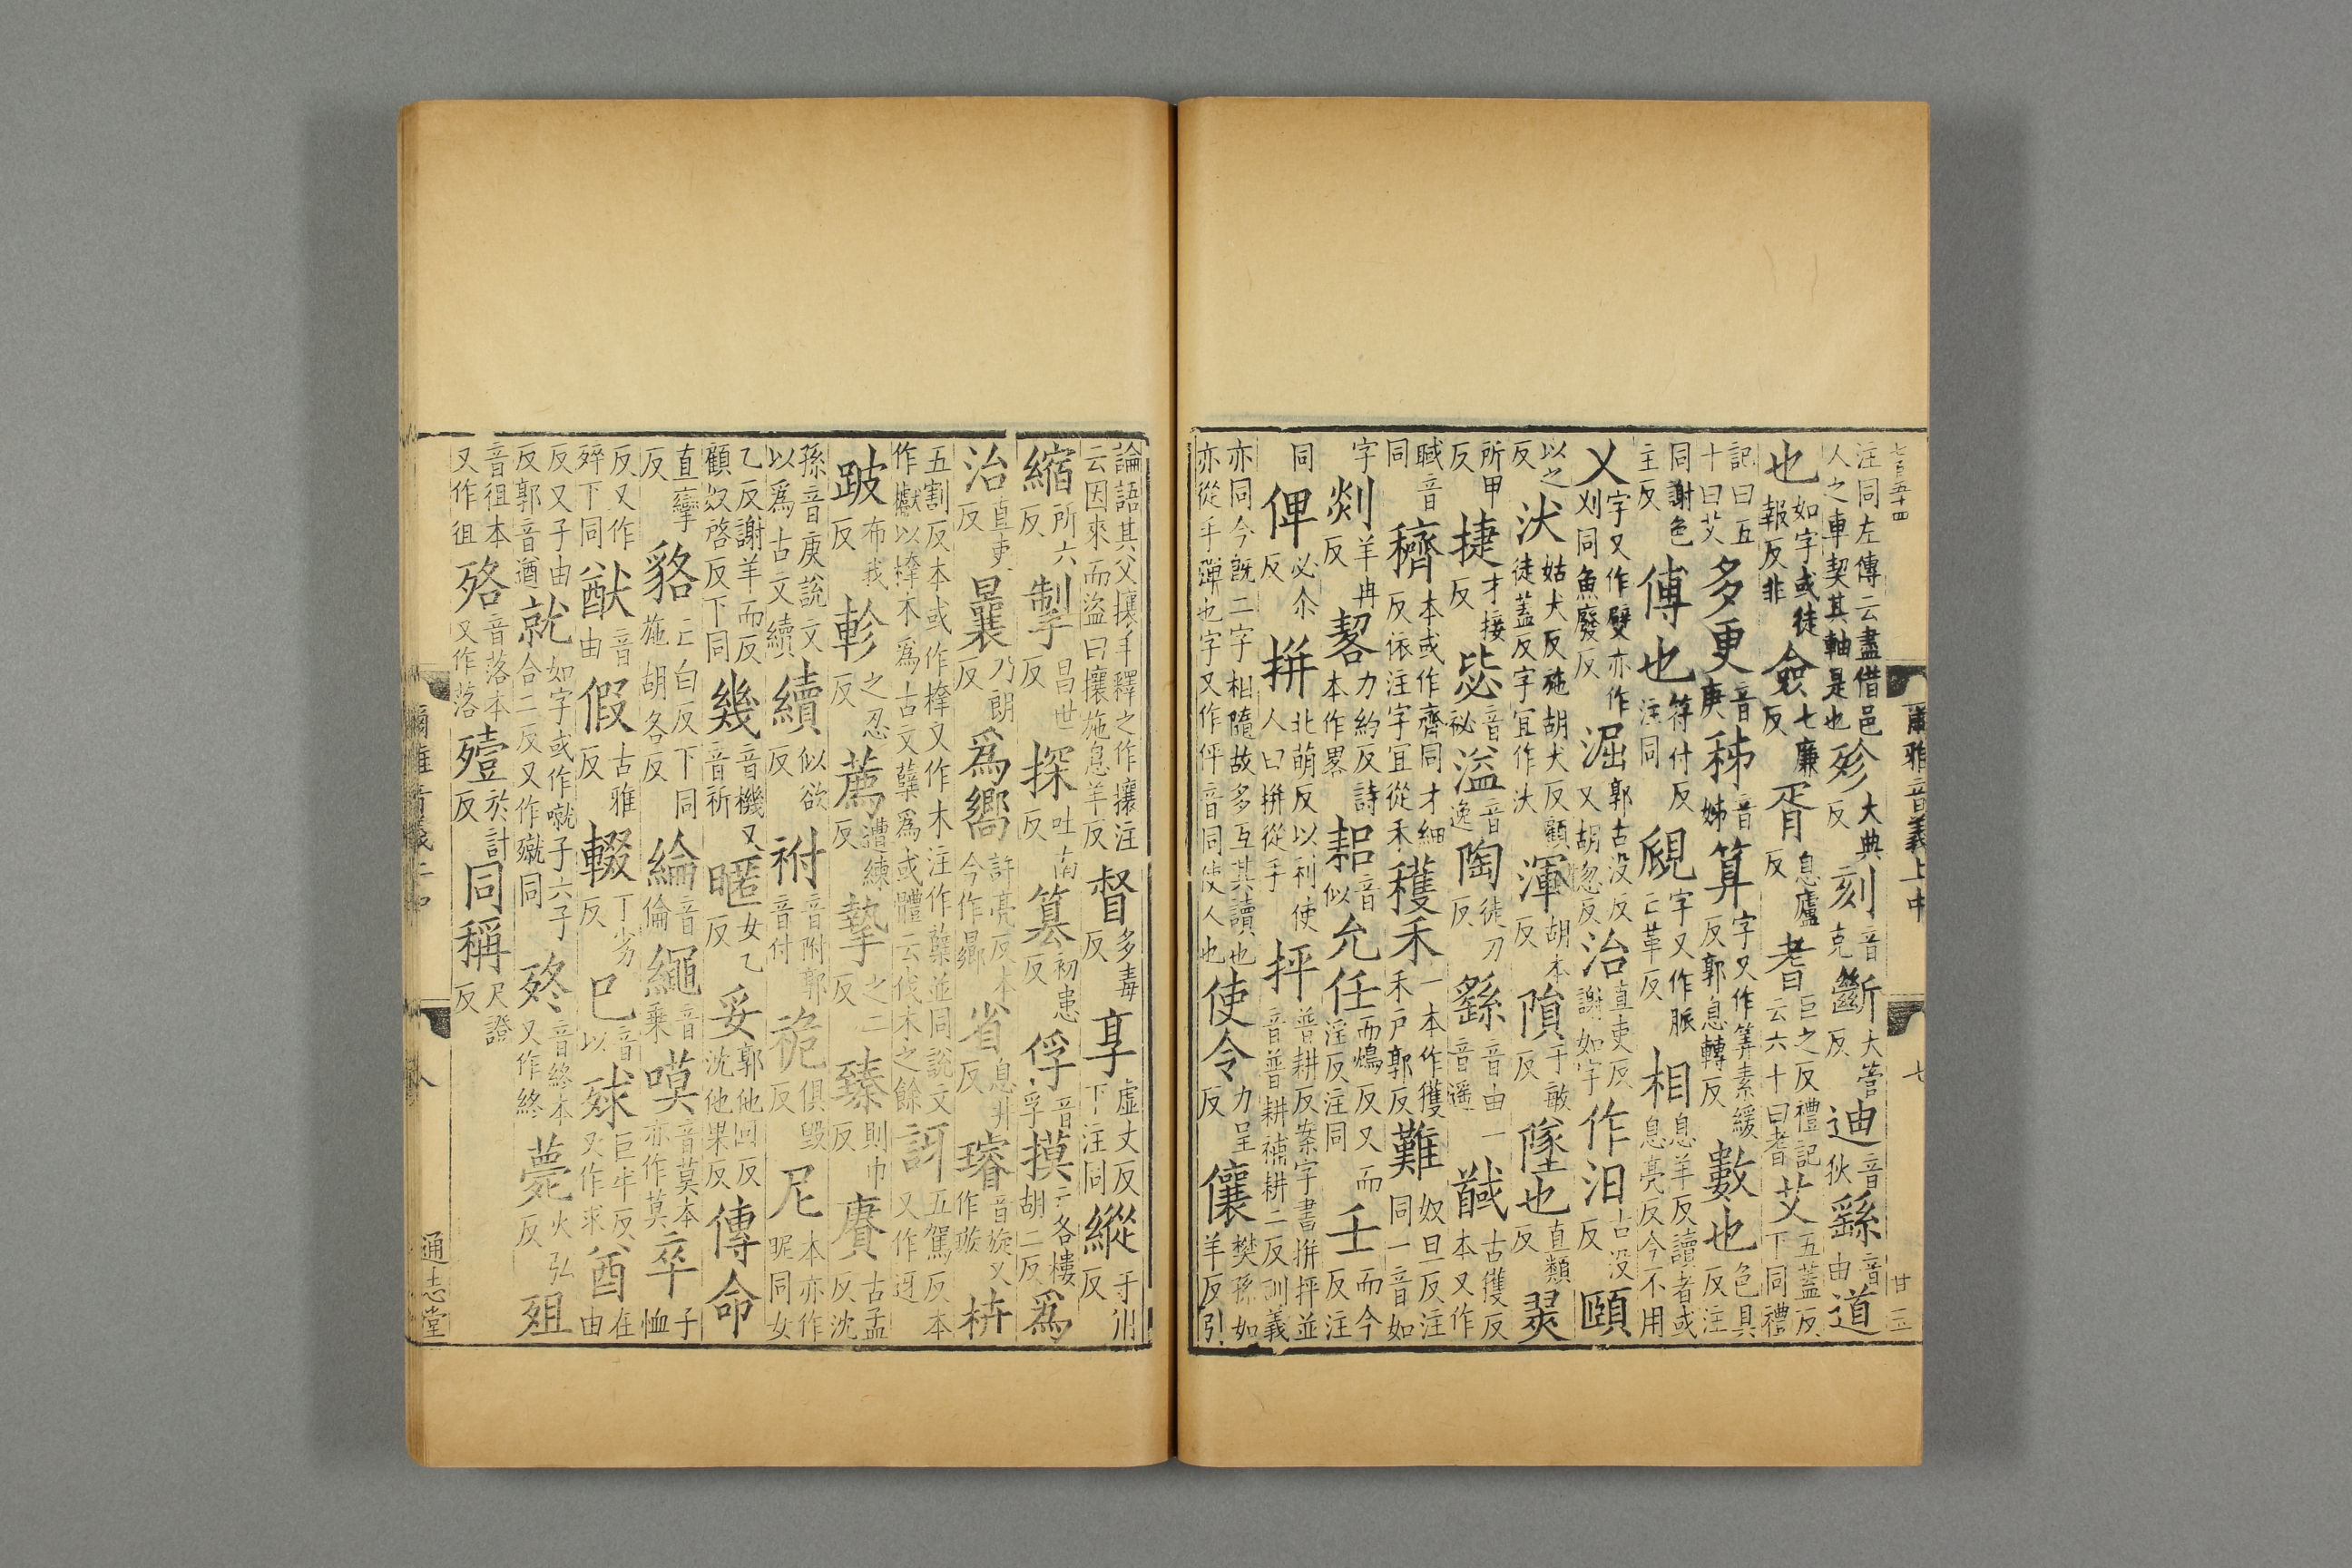 七百五十四 廿三
爾雅音義上中 七
注同左傳云盡借邑人之車契其軸是也 殄大典反 刻音克 斷大管反 迪音狄 繇音由 道
也如字或徒報反非 僉七廉反 胥息廬反 耆巨之反禮記云六十曰耆 艾五蓋反下同禮
記曰五十曰艾 多更音庚 秭音姊 算字又作筭素緩反郭息轉反 數也色具反注
同謝色主反 傅也符付反注同 覛字又作脈亡革反 相息羊反讀者或息亮反今不用
乂字又作嬖亦作刈同魚廢反 淈郭古没反又胡忽反 治直吏反謝如字 作汩古没反 頤
以之反 汱姑犬反施胡犬反顧徒蓋反字宜作汏 渾胡本反 隕于敏反 墜也直類反 翜
所甲反 捷才接反 毖音祕 溢音逸 陶徒刀反 繇音由一音遥 馘古獲反本又作
聝音同 穧本或作齊同才細反依注字宜從禾 穫禾一本作獲禾戶郭反 難奴旦反注同一音如
字 剡羊冉反 䂮力約反詩本作畧 耜音似 允任而鴆反又而淫反注同 壬而今反注
同 俾必尒反 拼北萌反以利使人曰拼從手 抨普耕反案字書拼抨並音普耕補耕二反訓義
亦同今旣二字相隨故多互其讀也亦從手彈也字又作伻音同使人也 使令力呈反 儴樊孫如羊反引
論語其父攘羊釋之作攘注云因來而盗曰攘施息羊反 督多毒反 享虚丈反下注同 縱子用反
縮所六反 掣昌世反 探吐南反 篡初患反 俘音孚 摸亡各樓胡二反 爲
治直吏反 曩乃朗反 爲嚮許亮反本今作曏 省息井反 璿音旋又作璇 枿
五割反本或作㰍又作木注作蘖並同說文作㰍以㭙木爲古文蘖爲或體云伐木之餘 訝五駕反本又作迓
跛布我反 軫之忍反 薦遭練反 摯之二反 臻則巾反 賡古孟反沈
孫音庚說文以爲古文續 續似欲反 祔音附郭音付 祪俱毀反 尼本亦作昵同女
乙反謝羊而反顧奴啓反下同 幾音機又音祈 暱女乙反 妥郭他回反沈他果反 傳命
直孿反 貉亡白反下同施胡各反 綸音倫 繩音乘 嗼音莫本亦作莫 卒子恤
反又作䘚下同 猷音由 假古雅反 輟丁劣反 已音以 殏巨牛反又作求 酋在由
反又子由反郭音遒 就如字或作噈子六子合二反又作殧同 㱡音終本又作終 薨火弘反 殂
音徂本又作徂 殆音落本又作落 殪於計反 同稱尺證反
爾雅音義上中 八 通志堂